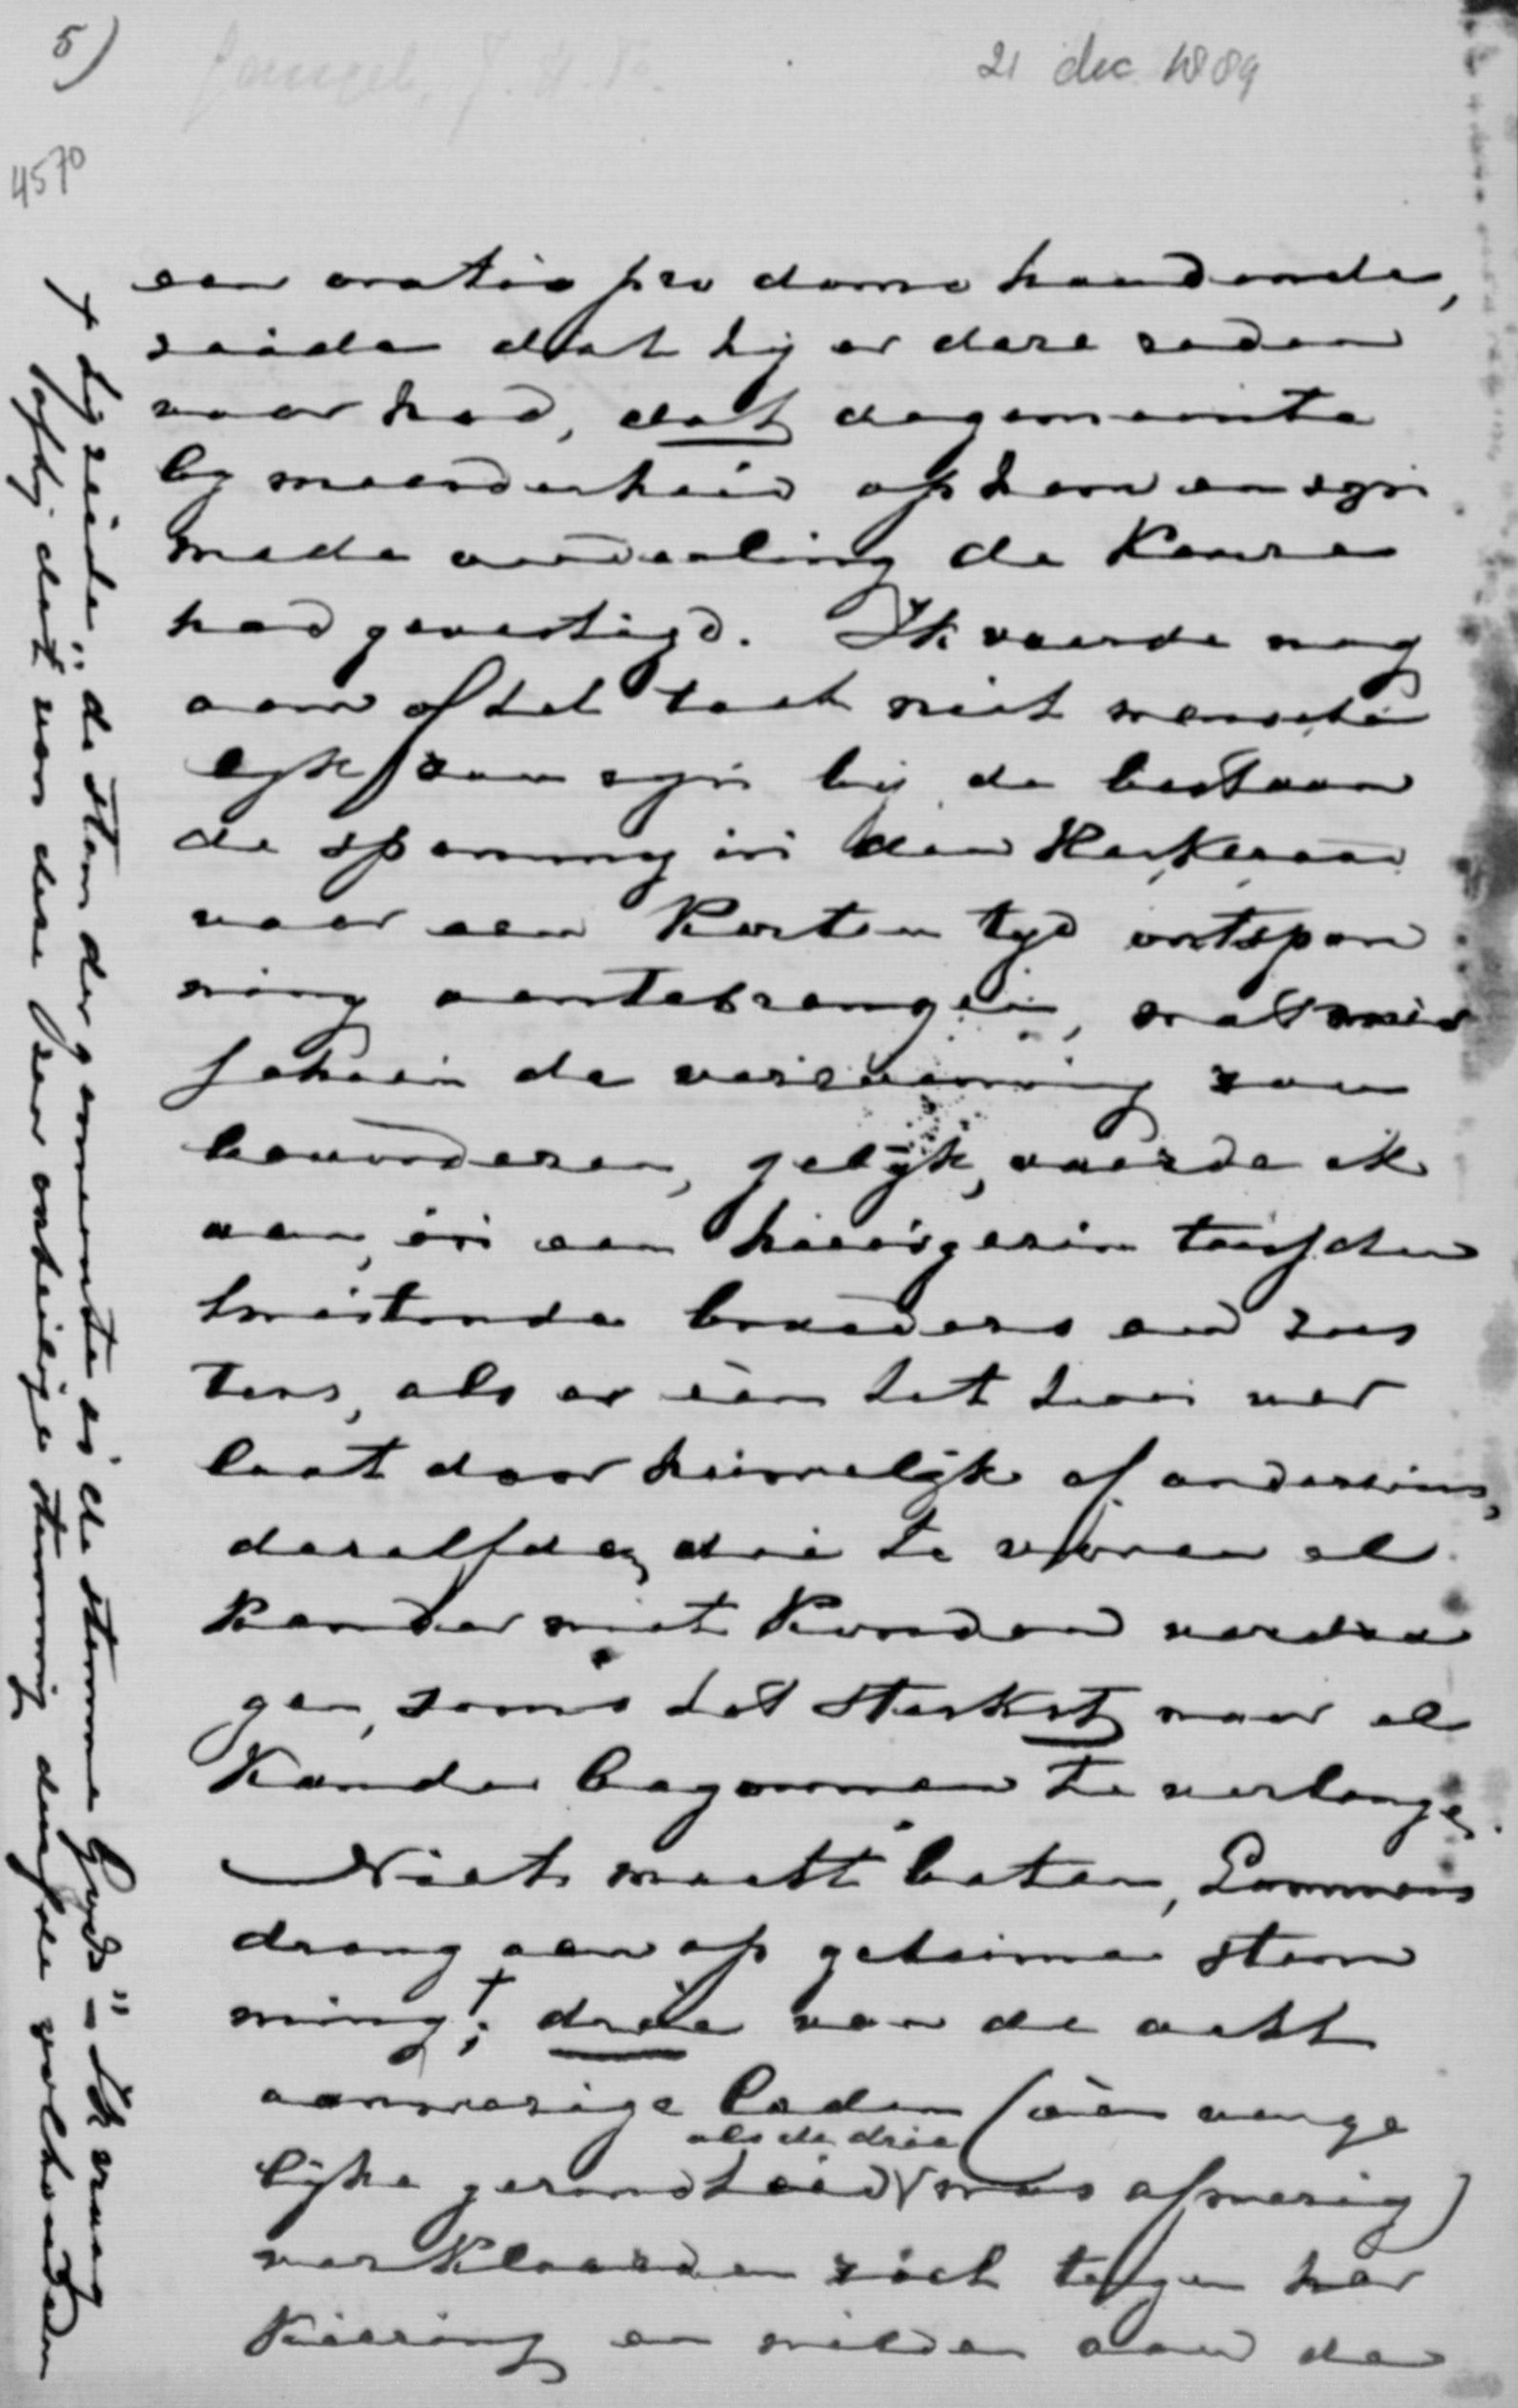 5)
21 dec 1889
4570
een oratio pro domo houdende,
zeide dat hij er deze reden
voor had, dat de gemeente
bij meerderheid op hem en zijn
mede ouderling de keuze
had gevestigd. Ik voerde nog
aan of het toch niet wensche
lijk zou zijn bij de bestaan
de spanning in den Kerkeraad
voor een korten tyd ontspan
ning aantebrengen, wat mis
schien de verzoening zou
bevorderen, gelijk, voerde ik
aan, in een huisgezin tusschen
twistende broeders en zus
ters, als er één het huis ver
laat door huwelijk of anderszins,
dezelfden, die te voren el
kander niet konden verdra
gen, soms het sterkst naar el
kander begonnen te verlangen.
Niets mocht baten, Lammers
drong aan op geheime stem
ming †; drie van de acht
aanwezige leden (één van ge
lijke gezindheid als de drie was afwezig)
verklaarden zich tegen her
kiezing en wilden aan de
† Hij zeide: "de stem der gemeente is de stemme Gods" – Ik vraag
of hij dat van deze zeer onheilige stemming durfde volhouden